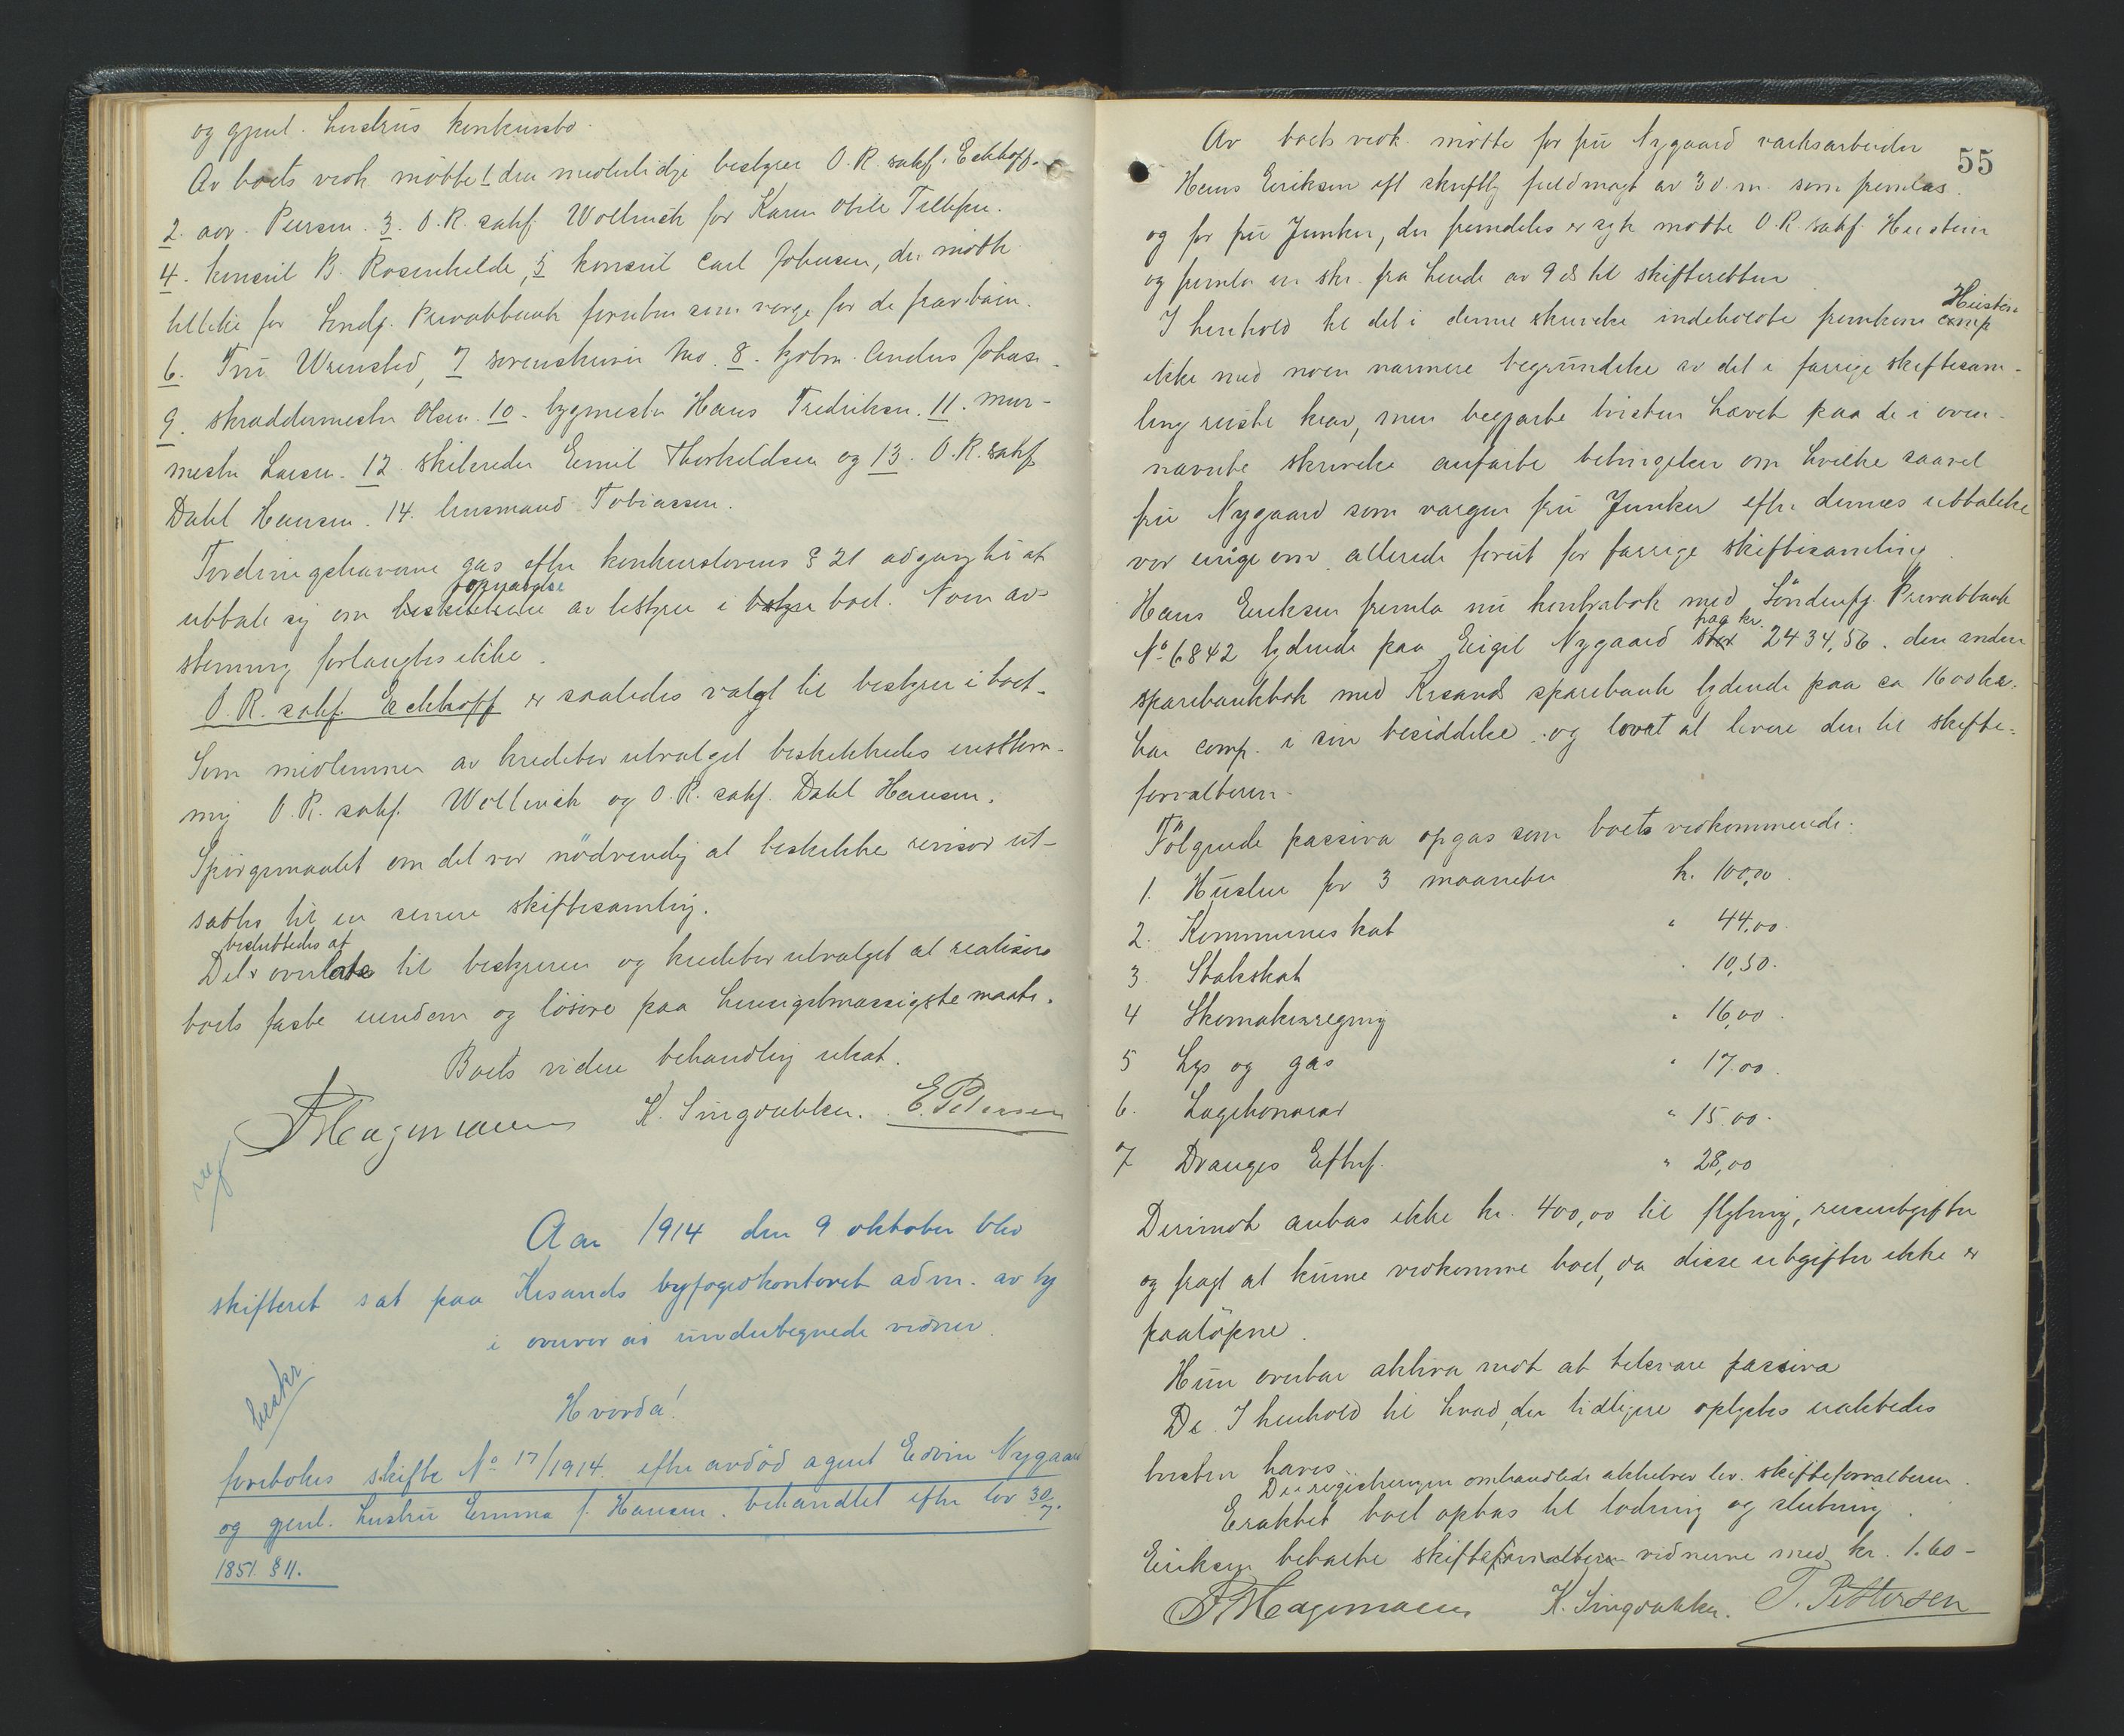 og gjenl. hustrus konkursbo.
Av boets vedk. møtte 1. den midlertidige bestyrer O.R. sakf. Eckhoff.
2. adv. Peersen. 3. O.R. sakf. Wollnick for Karen Otilie Tellefsen.
4. konsul B. Rosenkilde, 5 konsul Carl Johnsen, der møtte
tillike for Søndfj. Privatbank foruten som verge for de frav. børn.
6. Fru Wrensted, 7 sorenskriver Mo. 8. kjøbm. Anders Johns.
9. skræddermester Olsen. 10. bygmester Hans Fredriksen. 11. mur-
mester Larsen. 12 skibsreder Emil Thorkildsen og 13. O.R. sakf.
Dahl Hansen. 14. husmand Tobiassen.
Fordringshaverne gas efter konkurslovens § 21 adgang til at
uttale sig om opnævnelse av bestyrer i boet. Noen av-
stemning forlangtes ikke.
O.R. sakf. Eckhoff er saaledes valgt til bestyrer i boet.
Som medlemmer av kreditorutvalget beskikkedes enstem-
mig O.R. sakf. Wollnick og O.R. sakf. Dahl Hansen.
Spørgsmaalet om det var nödvendig at beskikke revisor ut-
sattes til en senere skiftesamling.
besluttedes at
Det overlate til bestyreren og kreditorutvalget at realisere
boets faste eiendom og løsøre paa hensigtsmæssigste maate.
Boets videre behandling utsat.
F Hagemann K. Singdahlsen. E. Petersen
reg
Aar 1914 den 9 oktober blev
skifteret sat paa Krsands byfogedkontoret adm. av by
i overvær av undertegnede vidner.
beskr.
Hvorda!
foretokes skifte No 17/1914 efter avdöd agent Edvin Nygaard
og gjenl. hustru Emma f. Hansen. behandlet efter lov 30/7
1851 § 11.
55
Av boets vedk. møtte for fru Nygaard værksarbeider
Hans Eriksen eft skriftlig fuldmagt av 3 d.m. som fremlas.
og for fru Junker, der fremdeles er syk møtte O.R. sakf. Heistein
og fremla en skr. fra hende av 9 ds til skifteretten
I henhold til det i denne skrivelse indeholdte fremkom Heistein
ikke med noen nærmere begrundelse av det i forrige skiftesam-
ling reiste krav, men begjærte tvisten hævet paa de i oven-
nævnte skrivelse anførte betingelser om hvilke saavel
fru Nygaard som vergen fru Junker efter dennes uttalelse
var enige om allerede forut for forrige skiftesamling.
Hans Eriksen fremla nu kontrabok med Söndenfj. Privatbank
No 6842 lydende paa Eigil Nygaard paa kr. 2434,56. den anden
sparebankbok med Krsands sparebank lydende paa ca 1600 kr.
har comp. i sin besiddelse og lovet at levere den til skifte-
forvalteren.
Fölgende passiva opgas som boets vedkommende:
1. Husleie for 3 maaneder k. 100,00.
2. Kommuneskat " 44,00.
3 Statsskat " 10,50.
4 Skomakerregning " 16,00.
5 Lys og gas " 17.00.
6. Lægehonorar " 15.00.
7 Dvanges Efterf. " 28,00
Derimot antas ikke kr. 400,00 til flytning, reiseutgifter
og fragt at kunne vedkomme boet, da disse utgifter ikke er
paaløpne.
Hun overtar aktiva mot at tilsvare passiva
De. I henhold til hvad der tidligere oplystes eraktedes
tvisten hævet.
De i registreringen omhandlede aktstykker lev. skifteforvalteren
Eraktet boet optas til lodning og slutning.
Eriksen betalte skifteforvalteren vidnerne med kr. 1.60-
F Hagemann K. Singdahlsen. T. Pettersen